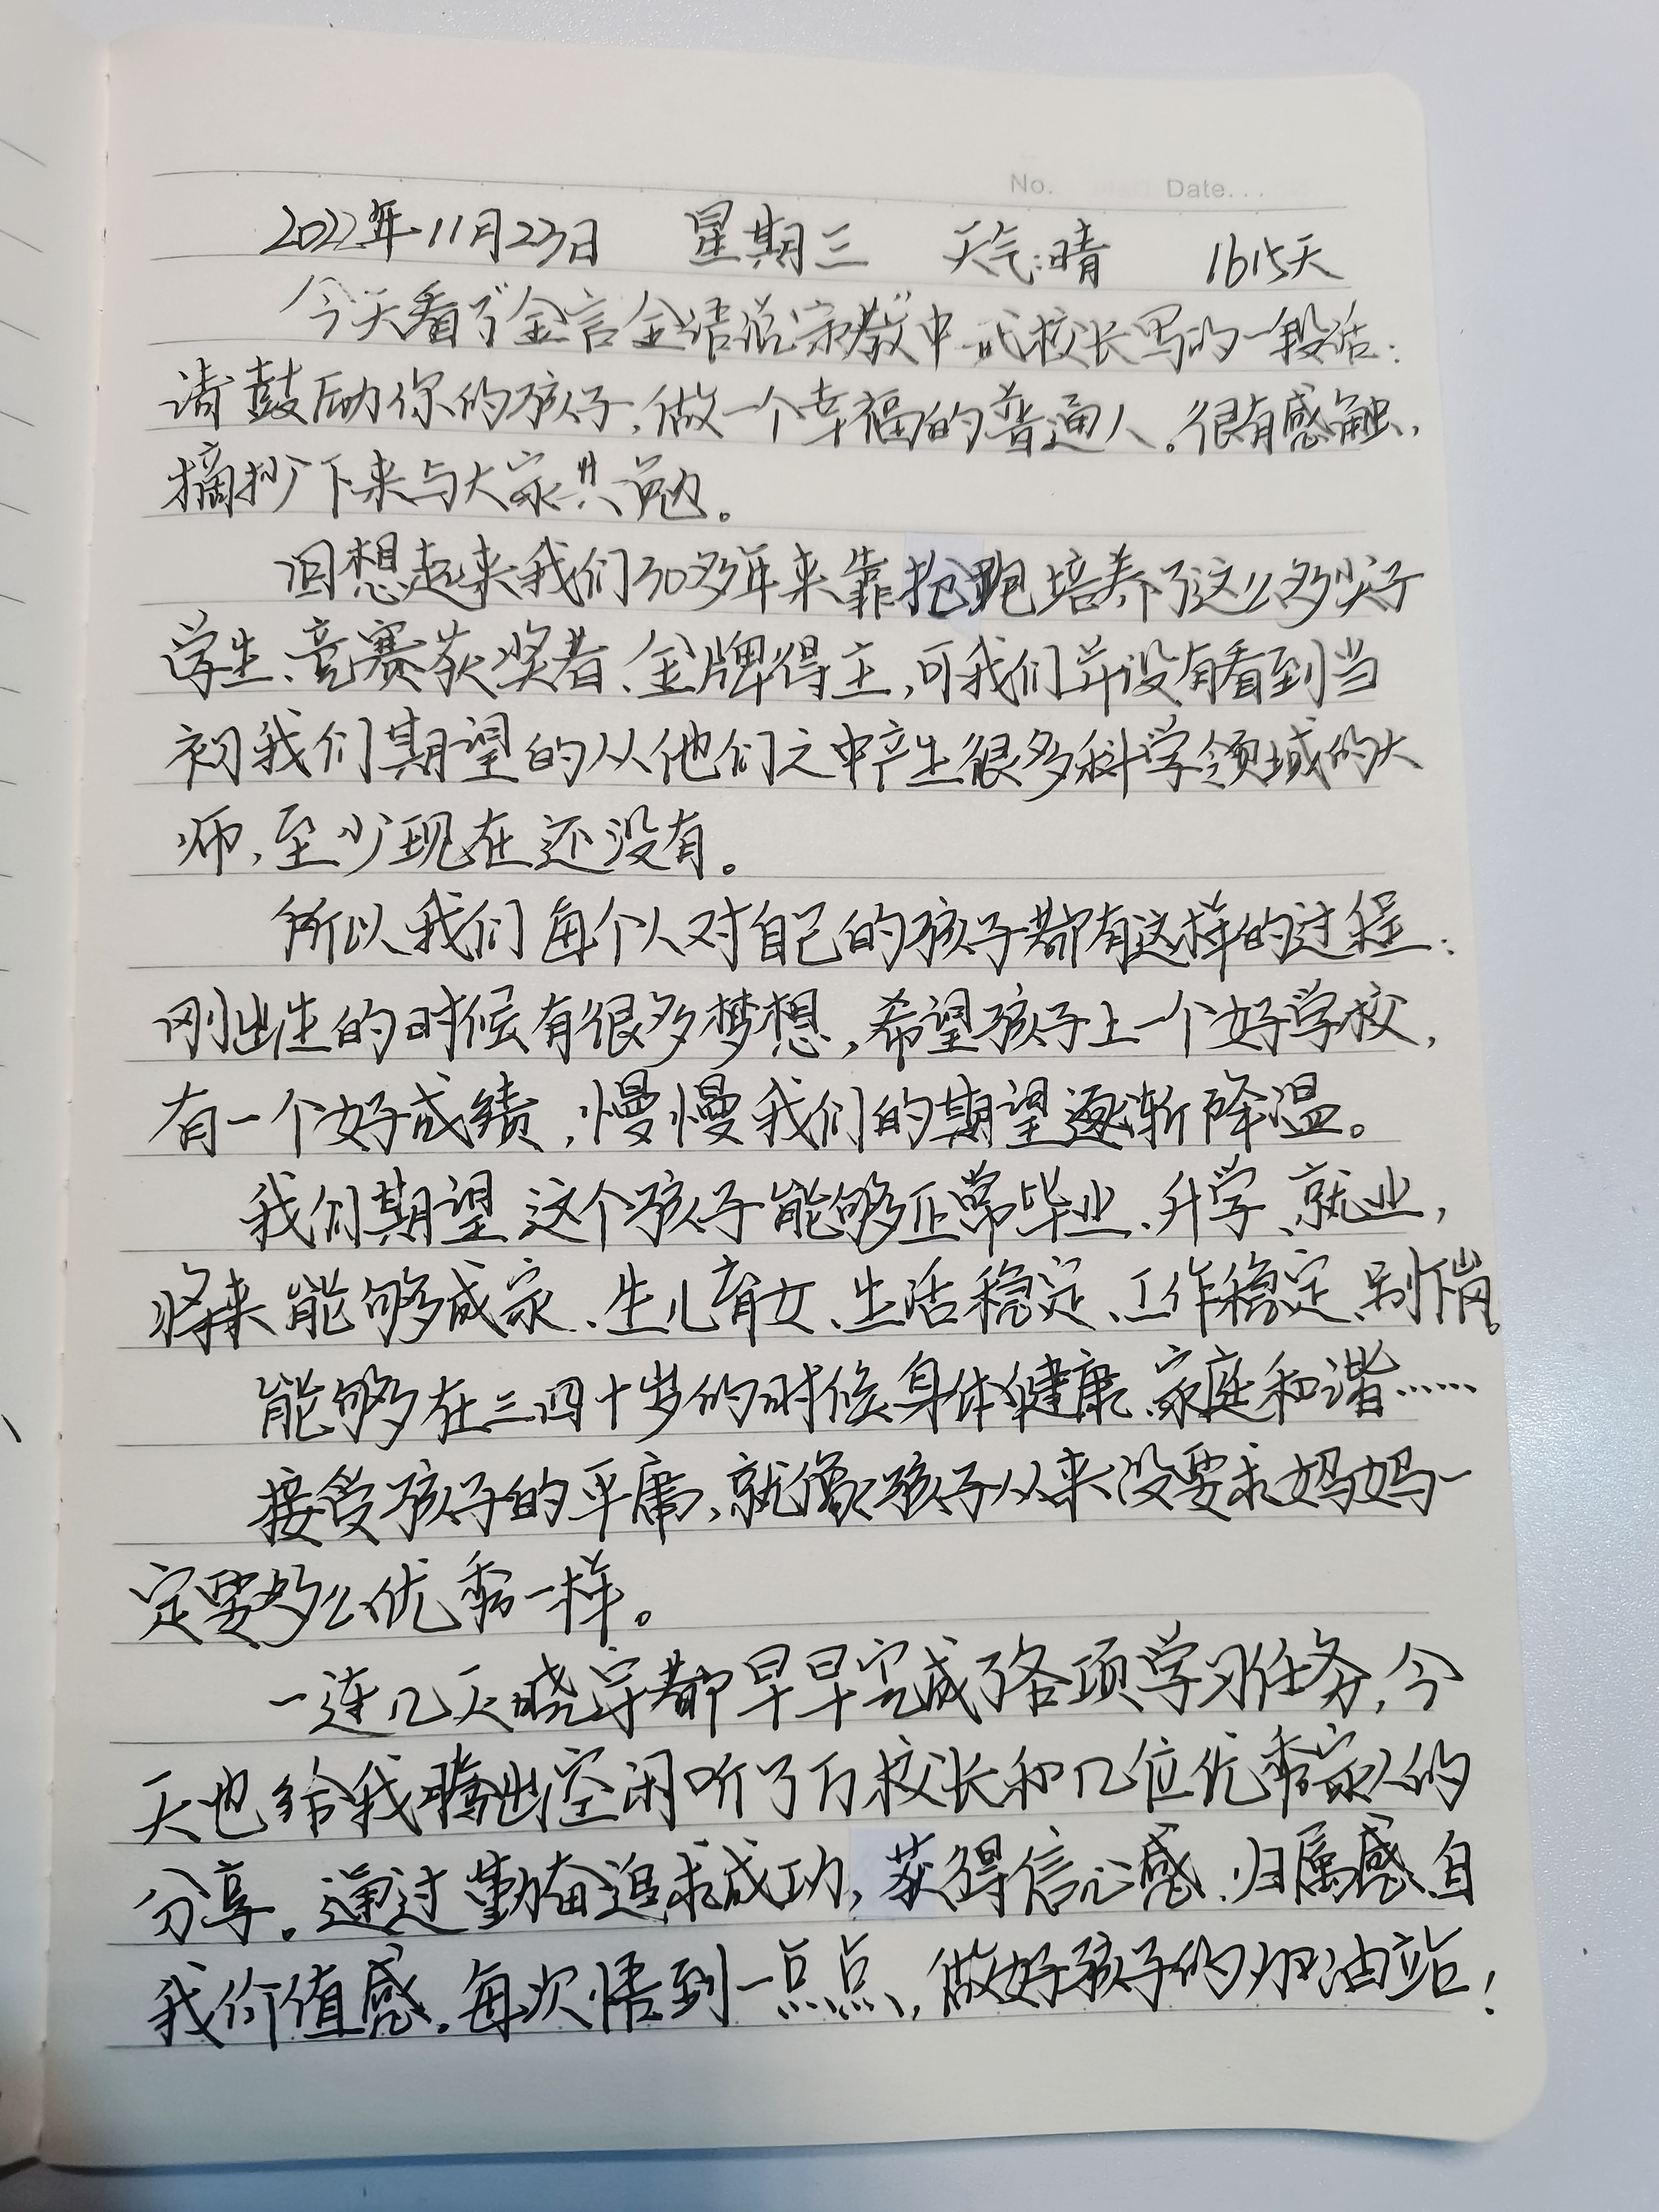 No. Date...
2022年11月23日 星期三 天气:晴 1615天
今天看了"金言金语说宗教"中武校长写的一段话:
请鼓励你的孩子,做一个幸福的普通人。很有感触,
摘抄下来与大家共勉。
回想起来我们30多年来靠抢跑培养了这么多尖子
学生、竞赛获奖者、金牌得主,可我们并没有看到当
初我们期望的从他们之中产生很多科学领域的大
师,至少现在还没有。
所以我们每个人对自己的孩子都有这样的过程:
刚出生的时候有很多梦想,希望孩子上一个好学校,
有一个好成绩,慢慢我们的期望逐渐降温。
我们期望这个孩子能够正常毕业、升学、就业,
将来能够成家、生儿育女、生活稳定、工作稳定、别下岗。
能够在三四十岁的时候身体健康、家庭和谐……
接受孩子的平庸,就像孩子从来没要求妈妈一
定要多么优秀一样。
一连几天晓宇都早早完成了各项学习任务,今
天也给我腾出空闲听了万校长和几位优秀家人的
分享。通过勤奋追求成功,获得信心感、归属感、自
我价值感。每次悟到一点点,做好孩子的加油站!